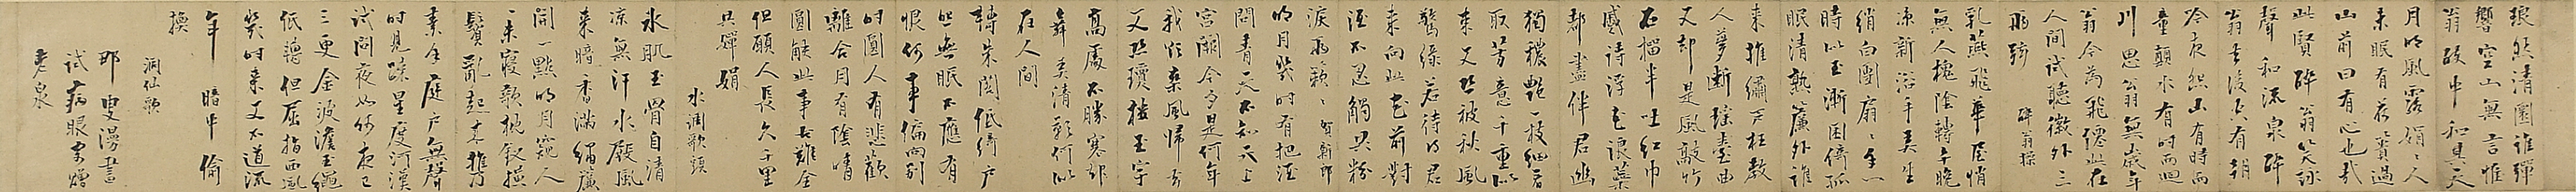 琅然清圜誰彈
響空山無言惟
翁醉中和其天
月明風露娟〻人
未眠有荷蕢過
山前曰有心也哉
此賢醉翁笑詠
聲和流泉醉
翁去後空有朝
吟夜怨山有時而
童顛水有時而迴
川思翁無歲年
翁今為飛僊此在
人間試聽徽外三
兩絃 醉翁操
乳燕飛華屋悄
無人槐陰轉午晚
涼新浴手弄生
綃白團扇〻手一
時似玉漸困倚孤
眠清熟簾外誰
來推繡戶枉教
人夢斷瑤臺曲
又却是風敲竹
石榴半吐紅巾
蹙待浮花浪蕊
都盡伴君幽
獨穠艷一枝細看
取芳意千重似
束又恐被秋風
驚綠若待得君
來向此花前對
酒不忍觸共粉
淚兩簌〻 賀新郎
明月幾時有把酒
問青天不知天上
宮闕今夕是何年
我欲乘風歸去
又恐瓊樓玉宇
高處不勝寒起
舞弄清影何似
在人間
轉朱閣低綺戶
照無眠不應有
恨何事偏向別
時圓人有悲歡
離合月有陰晴
圓缺此事古難全
但願人長久千里
共嬋娟
水調歌頭
冰肌玉骨自清
涼無汗水殿風
來暗香滿繡簾
開一點明月窺人
人未寢欹枕釵橫
鬢亂起來攜
素手庭戶無聲
時見疎星度河漢
試問夜如何夜已
三更金波澹玉繩
低轉但屈指西風
幾時來又不道流
年暗中偷
換
洞仙歌
叟漫書
試病眼
老泉